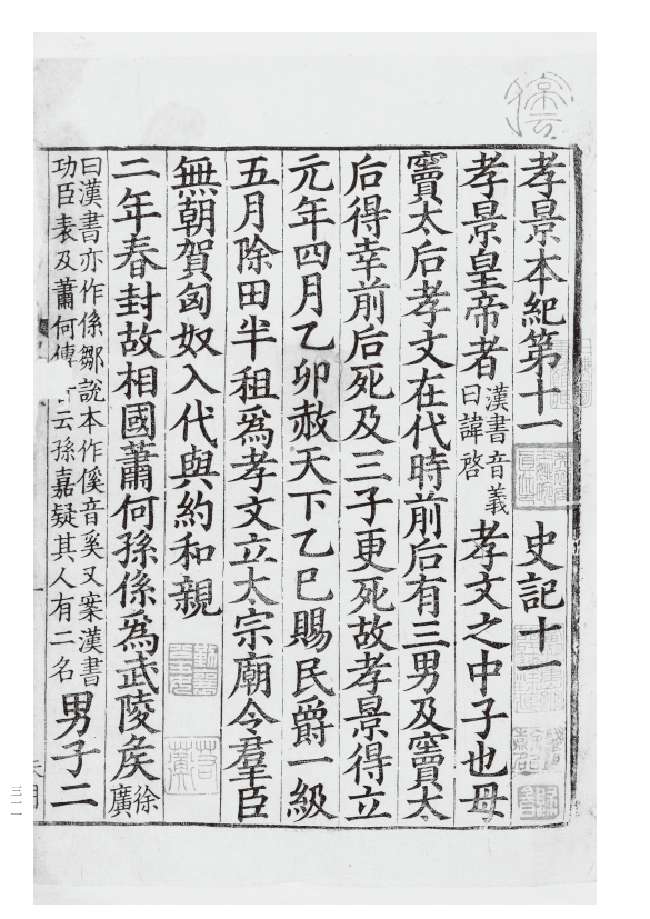 孝景本紀第十一 史記十一
孝景皇帝者漢書音義曰諱啓孝文之中子也母
竇太后孝文在代時前后有三男及竇太
后得幸前后死及三子更死故孝景得立
元年四月乙卯赦天下乙巳賜民爵一級
五月除田半租爲孝文立太宗廟令羣臣
無朝賀匈奴入代與約和親
二年春封故相國蕭何孫係爲武陵矦徐廣
曰漢書亦作係鄒說本作傒音奚又案漢書功臣表及蕭何傳云孫嘉疑其人有二名男子二
三一一